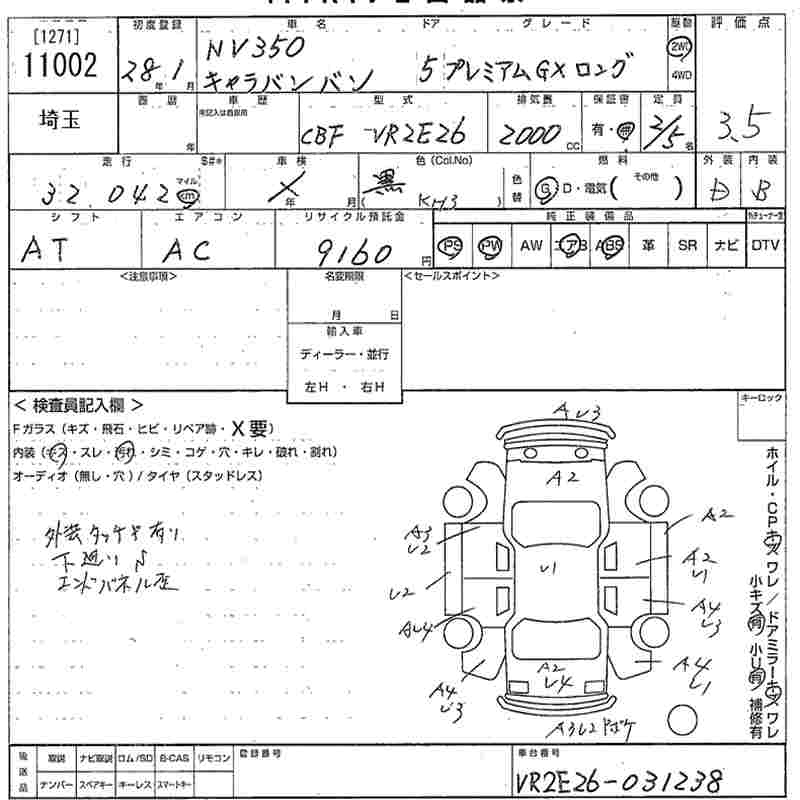 [1271]
11002
埼玉
初度登録
28年1月
車名
NV350
キャラバンバン
ドア
5
グレード
プレミアムGXロング
駆動
2WD
4WD
評価点
3.5
年
車歴
未記入は自家用
型式
CBF-VR2E26
排気量
2000cc
保証書
有・無
定員
2/5名
走行
32,042
マイル
km
S#*
車検
X
年 月
色(Col.No)
黒 KH3
色替
燃料
G D・電気(その他)
外装
D
内装
B
シフト
AT
エアコン
AC
リサイクル預託金
9160円
純正装備品
PS PW AW エアB ABS 革 SR ナビ DTV
<注意事項>
名変期限
月 日
輸入車
ディーラー・並行
左H・右H
<セールスポイント>
<検査員記入欄>
Fガラス(キズ・飛石・ヒビ・リペア跡・X要)
内装(キズ・スレ・汚れ・シミ・コゲ・穴・キレ・破れ・割れ)
オーディオ(無し・穴)/タイヤ(スタッドレス)
外装タッチ有り
下廻りS
エンドパネル歪
キーロック
AU3
A2
A3
U2
U1
A2
A2
U1
U2
AU4
A4
U3
A4
U3
A2
U4
A4
U1
A3U2ドボケ
ホイル・CPキズワレ/ドアミラーキズワレ
小キズ有 小U有 補修有
後送品
取説 ナビ取説 ロム/SD B-CAS リモコン
ナンバー スペアキー キーレス スマートキー
登録番号
車台番号
VR2E26-031238